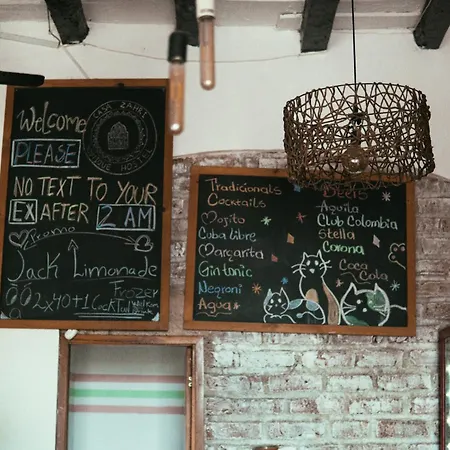 Welcome
CASA ZAHRI
YOUR HOSTEL
PLEASE
NO TEXT TO YOUR
EX AFTER 2 AM
Promo
Jack Limonade
Frozer
2x40+1 Cocktail
Welcome
Tradicionals
Cocktails
Mojito
Cuba libre
Margarita
Gin tonic
Negroni
Agua
Beers
Aguila
Club Colombia
Stella
Corona
Coca
Cola